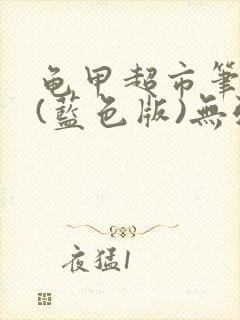 龟甲超市筆
(藍色版)無
夜猛1